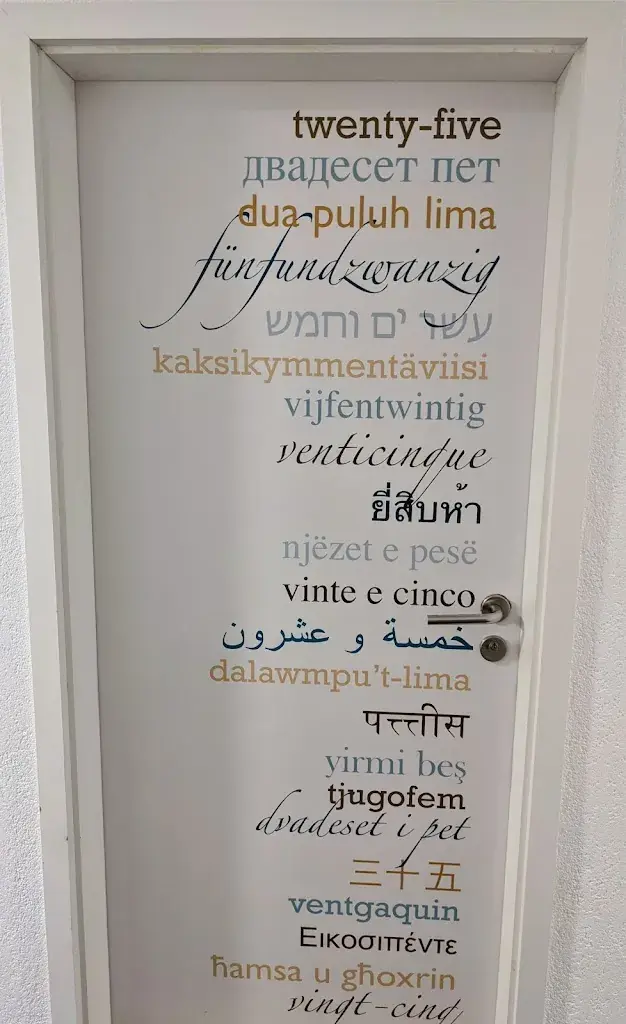 twenty-five
двадесет пет
dua puluh lima
fünfundzwanzig
עשר ים וחמש
kaksikymmentäviisi
vijfentwintig
venticinque
ยี่สิบห้า
njëzet e pesë
vinte e cinco
خمسة و عشرون
dalawmpu't-lima
पत्त्तीस
yirmi beş
tjugofem
dvadeset i pet
三十五
ventgaquin
Εικοσιπέντε
ħamsa u għoxrin
vingt-cinq